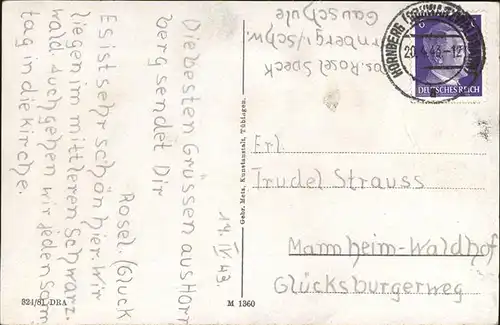 14. IV. 43.
Die besten Grüssen aus Horn
berg sendet Dir
Rosel. (Glück
Es ist sehr schön hier. Wir
liegen im mittleren Schwarz.
wald. Auch gehen wir jeden sonn
tag in die Kirche.
Abs. Rosel Speck
Hornberg / Schw.
Gauschule
HORNBERG (SCHWARZWALDBAHN)
DEUTSCHES REICH
6
Erl.
Trudel Strauss
Mannheim-Waldhof
Glücksburgerweg
Gebr. Metz, Kunstanstalt, Tübingen.
324/81 DRA
M 1360